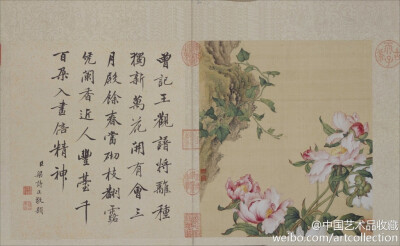 曾記王觀譜將離種
獨新萬花開有會三
月殿餘春當砌枝翻露
凭闌香近人豐臺千
百朶入畫倍精神
臣梁詩正敬題
@中国艺术品收藏
weibo.com/artcollection